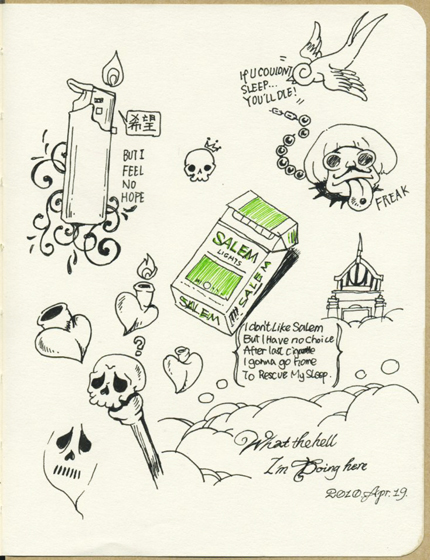 IF U COULDN'T
SLEEP...
YOU'LL DIE!
希望
BUT I
FEEL
NO
HOPE
FREAK
SALEM
LIGHTS
SALEM
SALEM
I don't Like Salem
But I Have no Choice
After last Cigarette
I gonna go home
To Rescue My Sleep.
?
What the hell
I'm Doing here
2010.Apr.19.